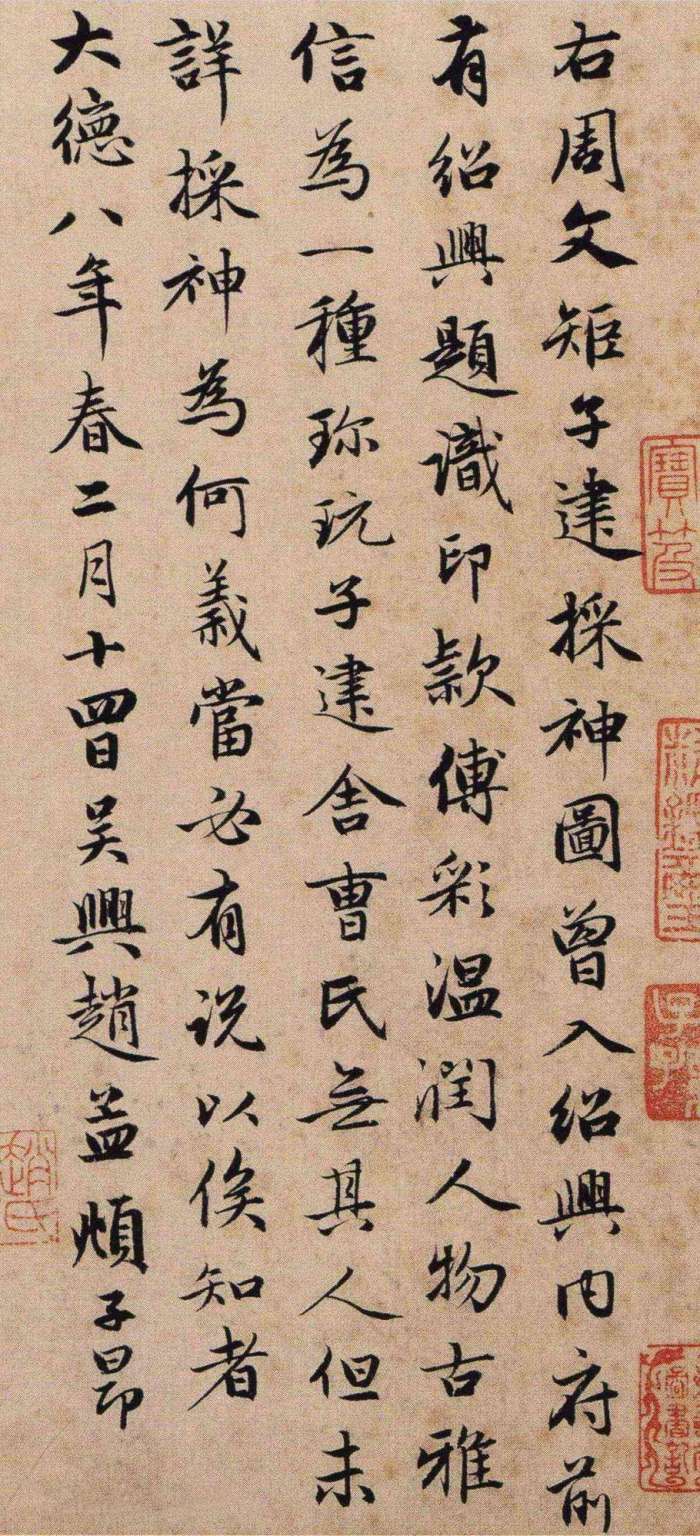 右周文矩子建採神圖曾入紹興內府前
有紹興題識印款傅彩温潤人物古雅
信為一種珎玩子建舍曺氏無其人但未
詳採神為何義當必有説以俟知者
大德八年春二月十四日吴興趙孟頫子昂
趙氏